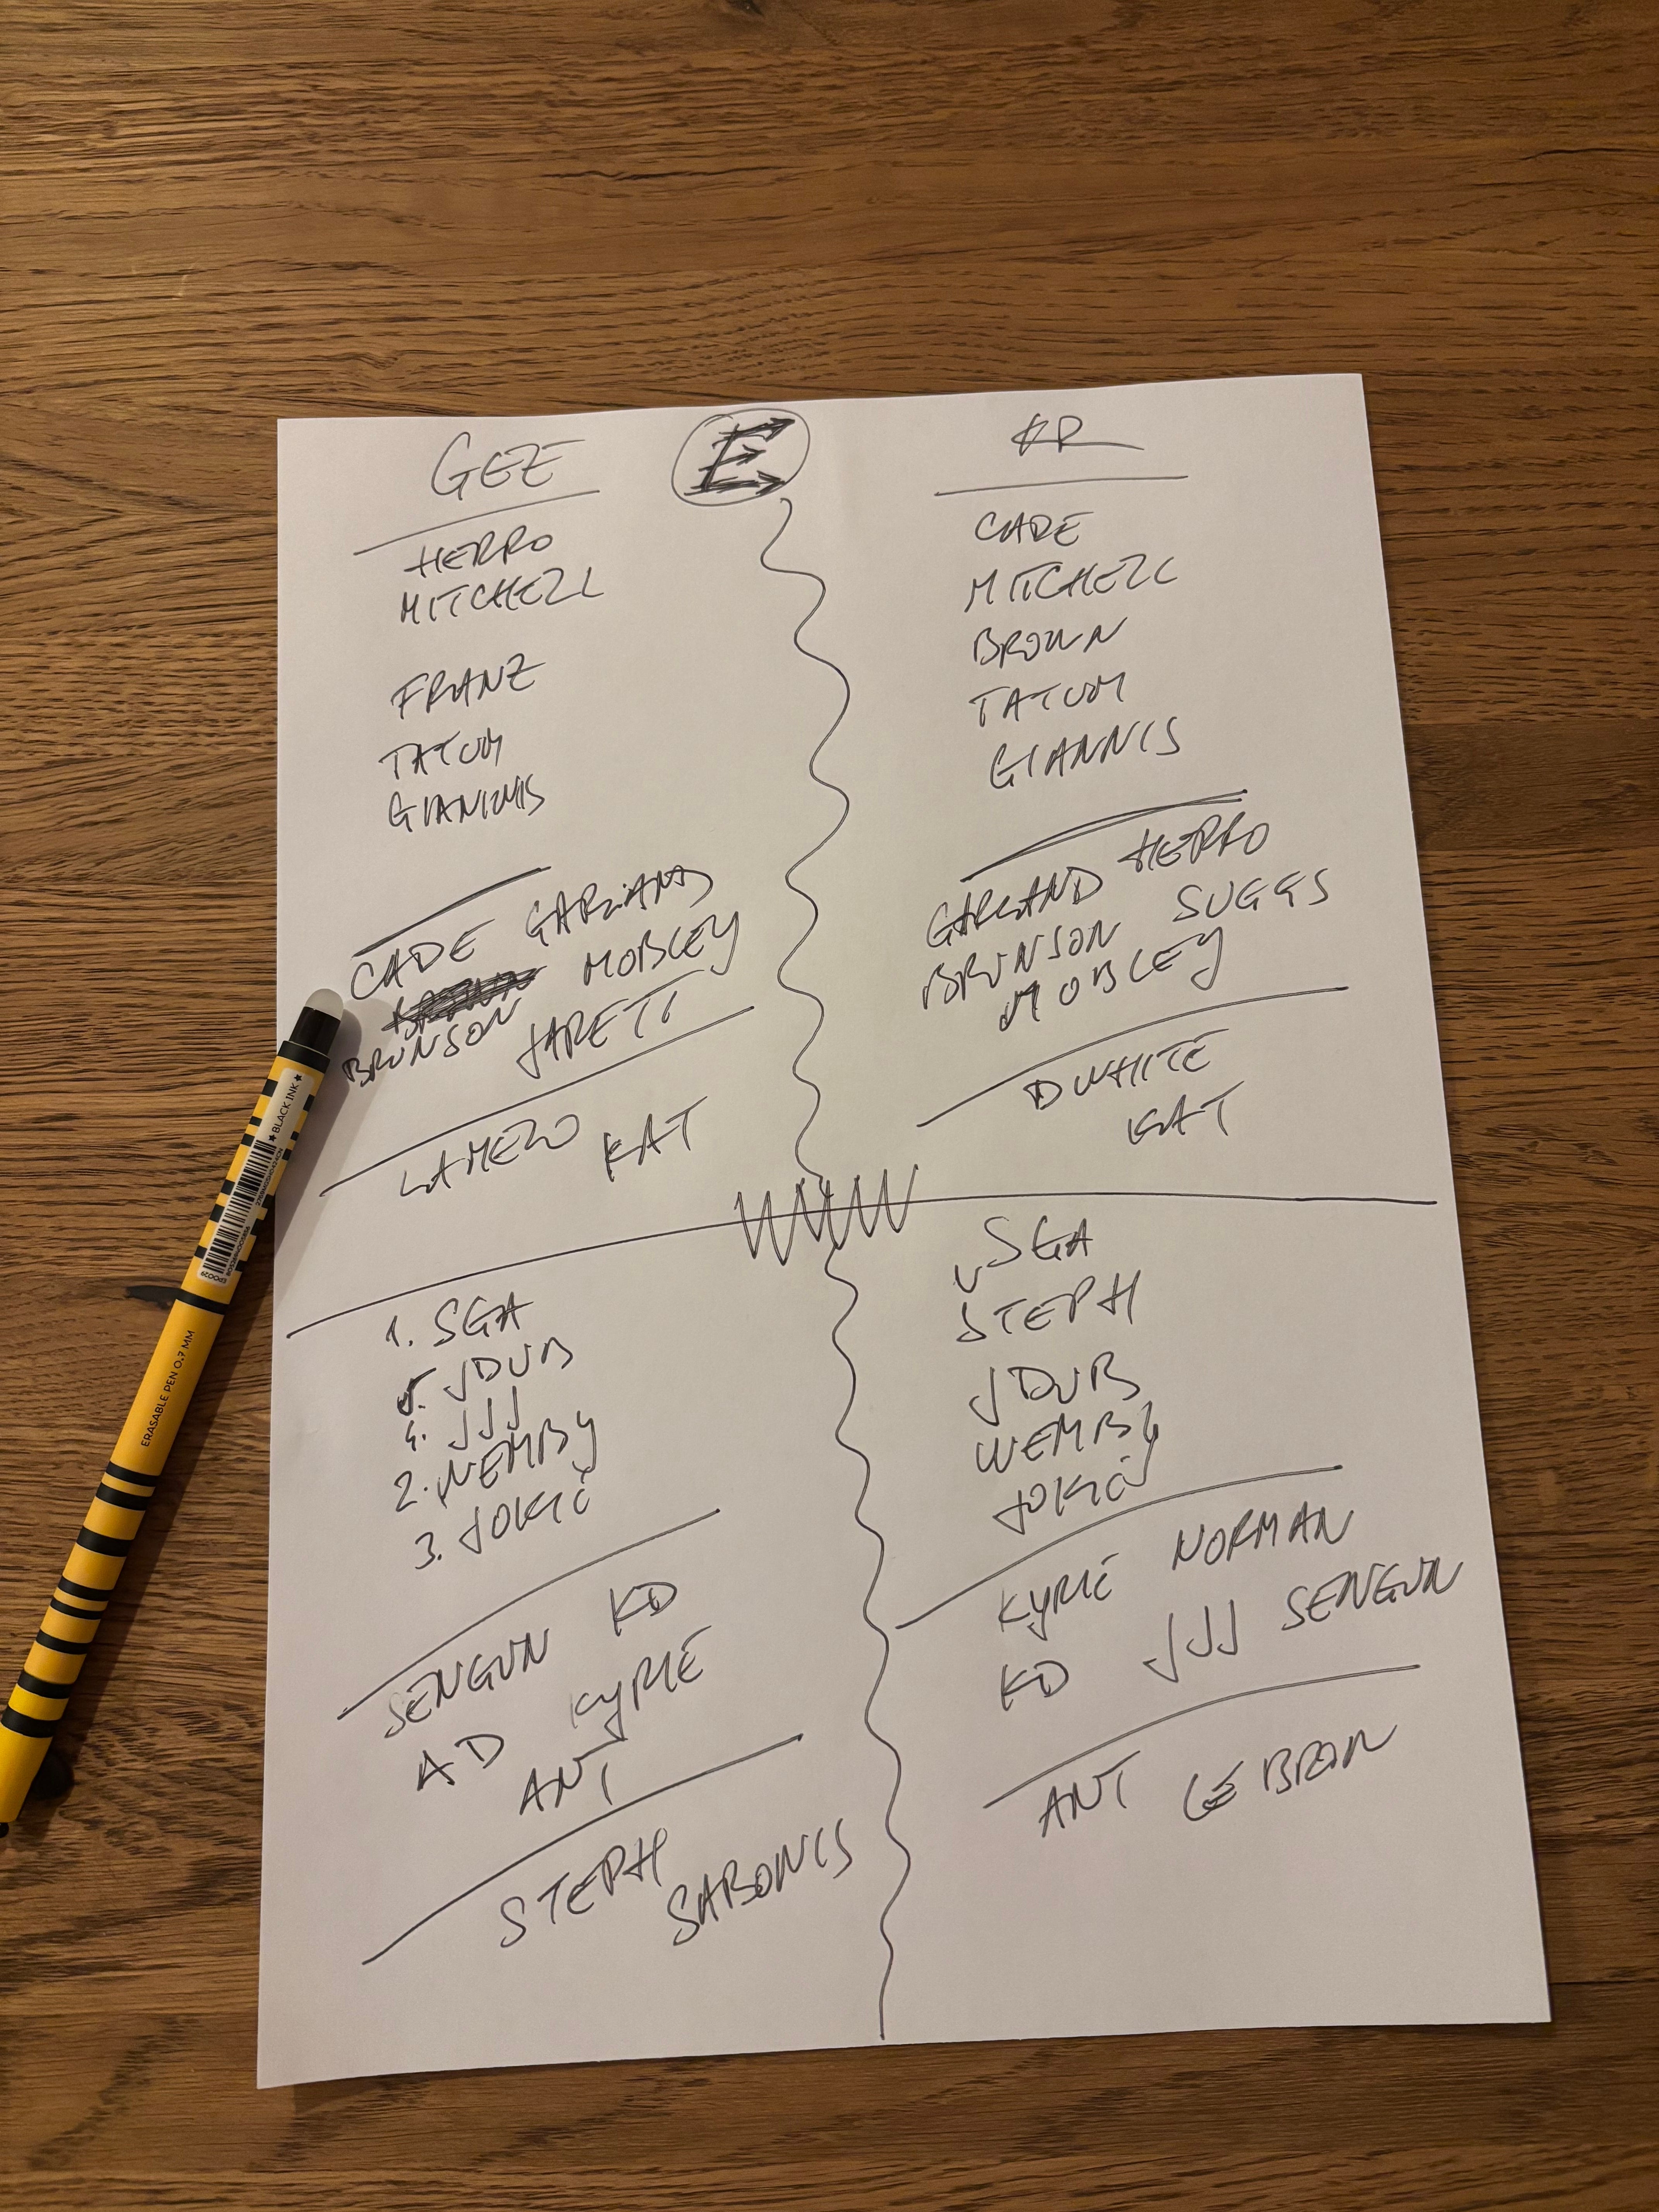 GEE
HERRO
MITCHELL
FRANZ
TATUM
GIANNIS
CADE GARLAND
MOBLEY
BRUNSON JARETT
LAMELO KAT
E
KR
CADE
MITCHELL
BROWN
TATUM
GIANNIS
GARLAND HERRO
BRUNSON SUGGS
MOBLEY
D WHITE
KAT
1. SGA
5. JDUB
4. JJJ
2. WEMBY
3. JOKIĆ
SENGUN KD
AD KYRIE
ANT
STEPH
SABONIS
SGA
STEPH
JDUB
WEMBY
JOKIĆ
KYRIE NORMAN
KD JJJ SENGUN
ANT LEBRON
★BLACK INK★
ERASABLE PEN 0.7 MM